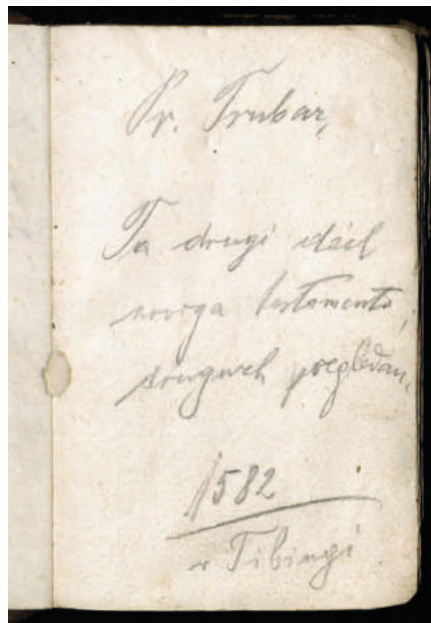 Pr. Trubar,
Ta drugi deil
noviga testamenta,
druguzh pregledan.
1582
v Tibingi